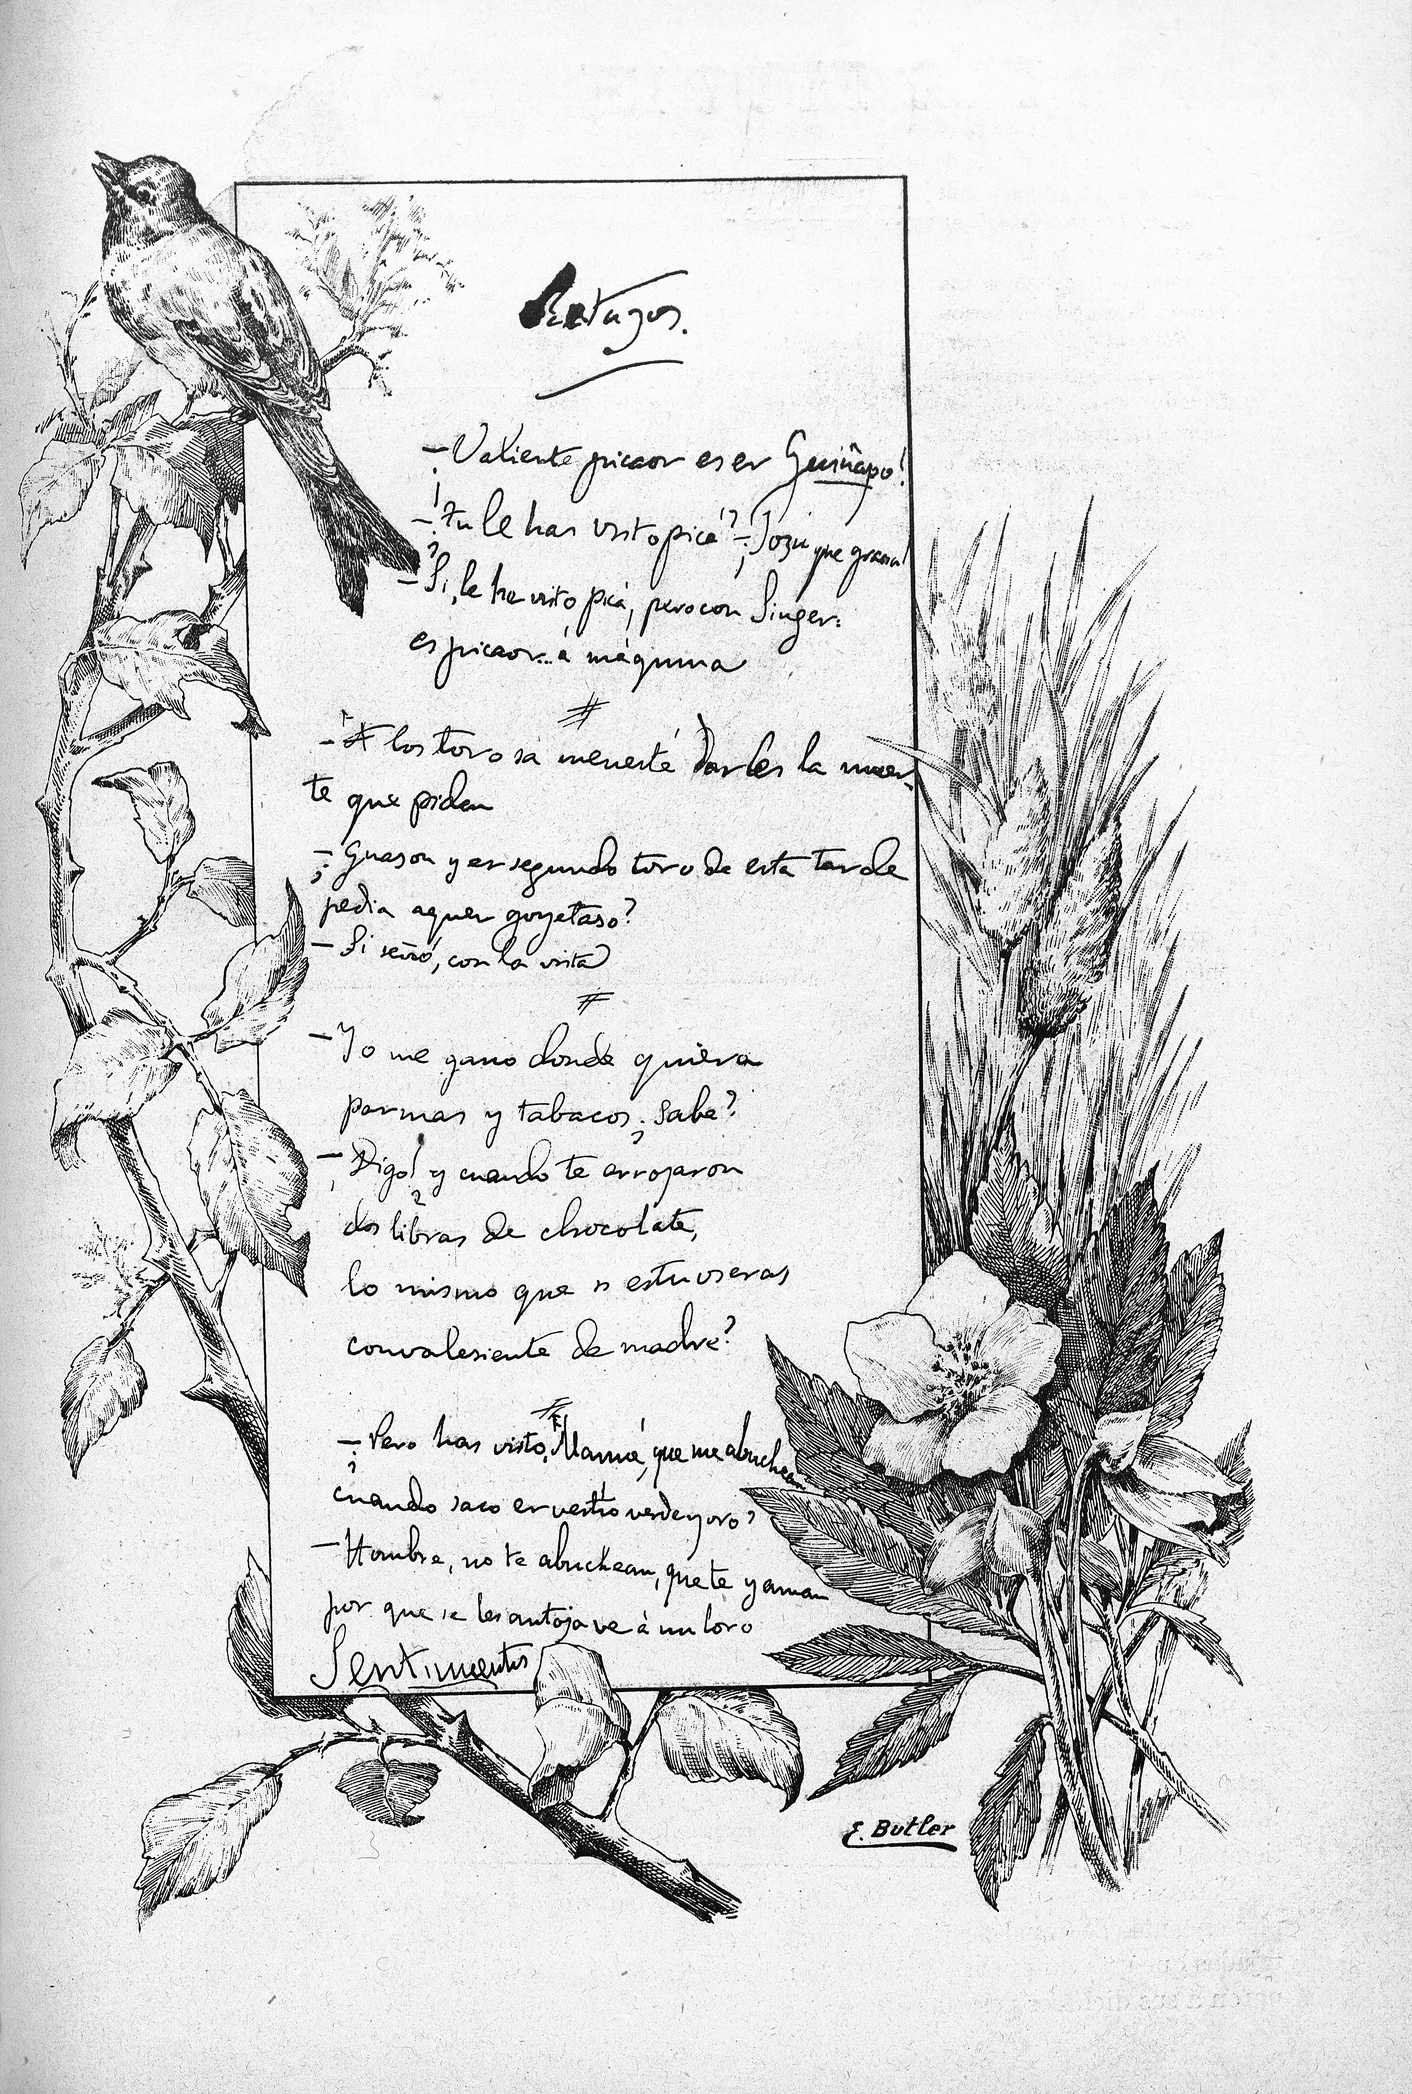 Retazos.
—¡Valiente picaor es er Guiñapo!
—¿Tu le has visto picá? —¡Jozú que grasia!
—Sí, le he visto picá, pero con Singer:
es picaor... á máquina
#
—A los toros sa menesté darles la muer-
te que piden
—¿Guason y er segundo toro de esta tarde
pedia aquer goyetaso?
—Si señó, con la vista
#
—Yo me gano donde quiera
parmas y tabacos ¿sabe?
—¡Digo! ¿y cuando te arrojaron
dos libras de chocolate,
lo mismo que si estuvieras
convalesiente de madre?
#
—¿Pero has visto, Mamá, que me abuchean
cuando saco er vestío verde y oro?
—Hombre, no te abuchean, que te yaman
por que se les antoja ve á un loro
Sentimientos
E. Butler